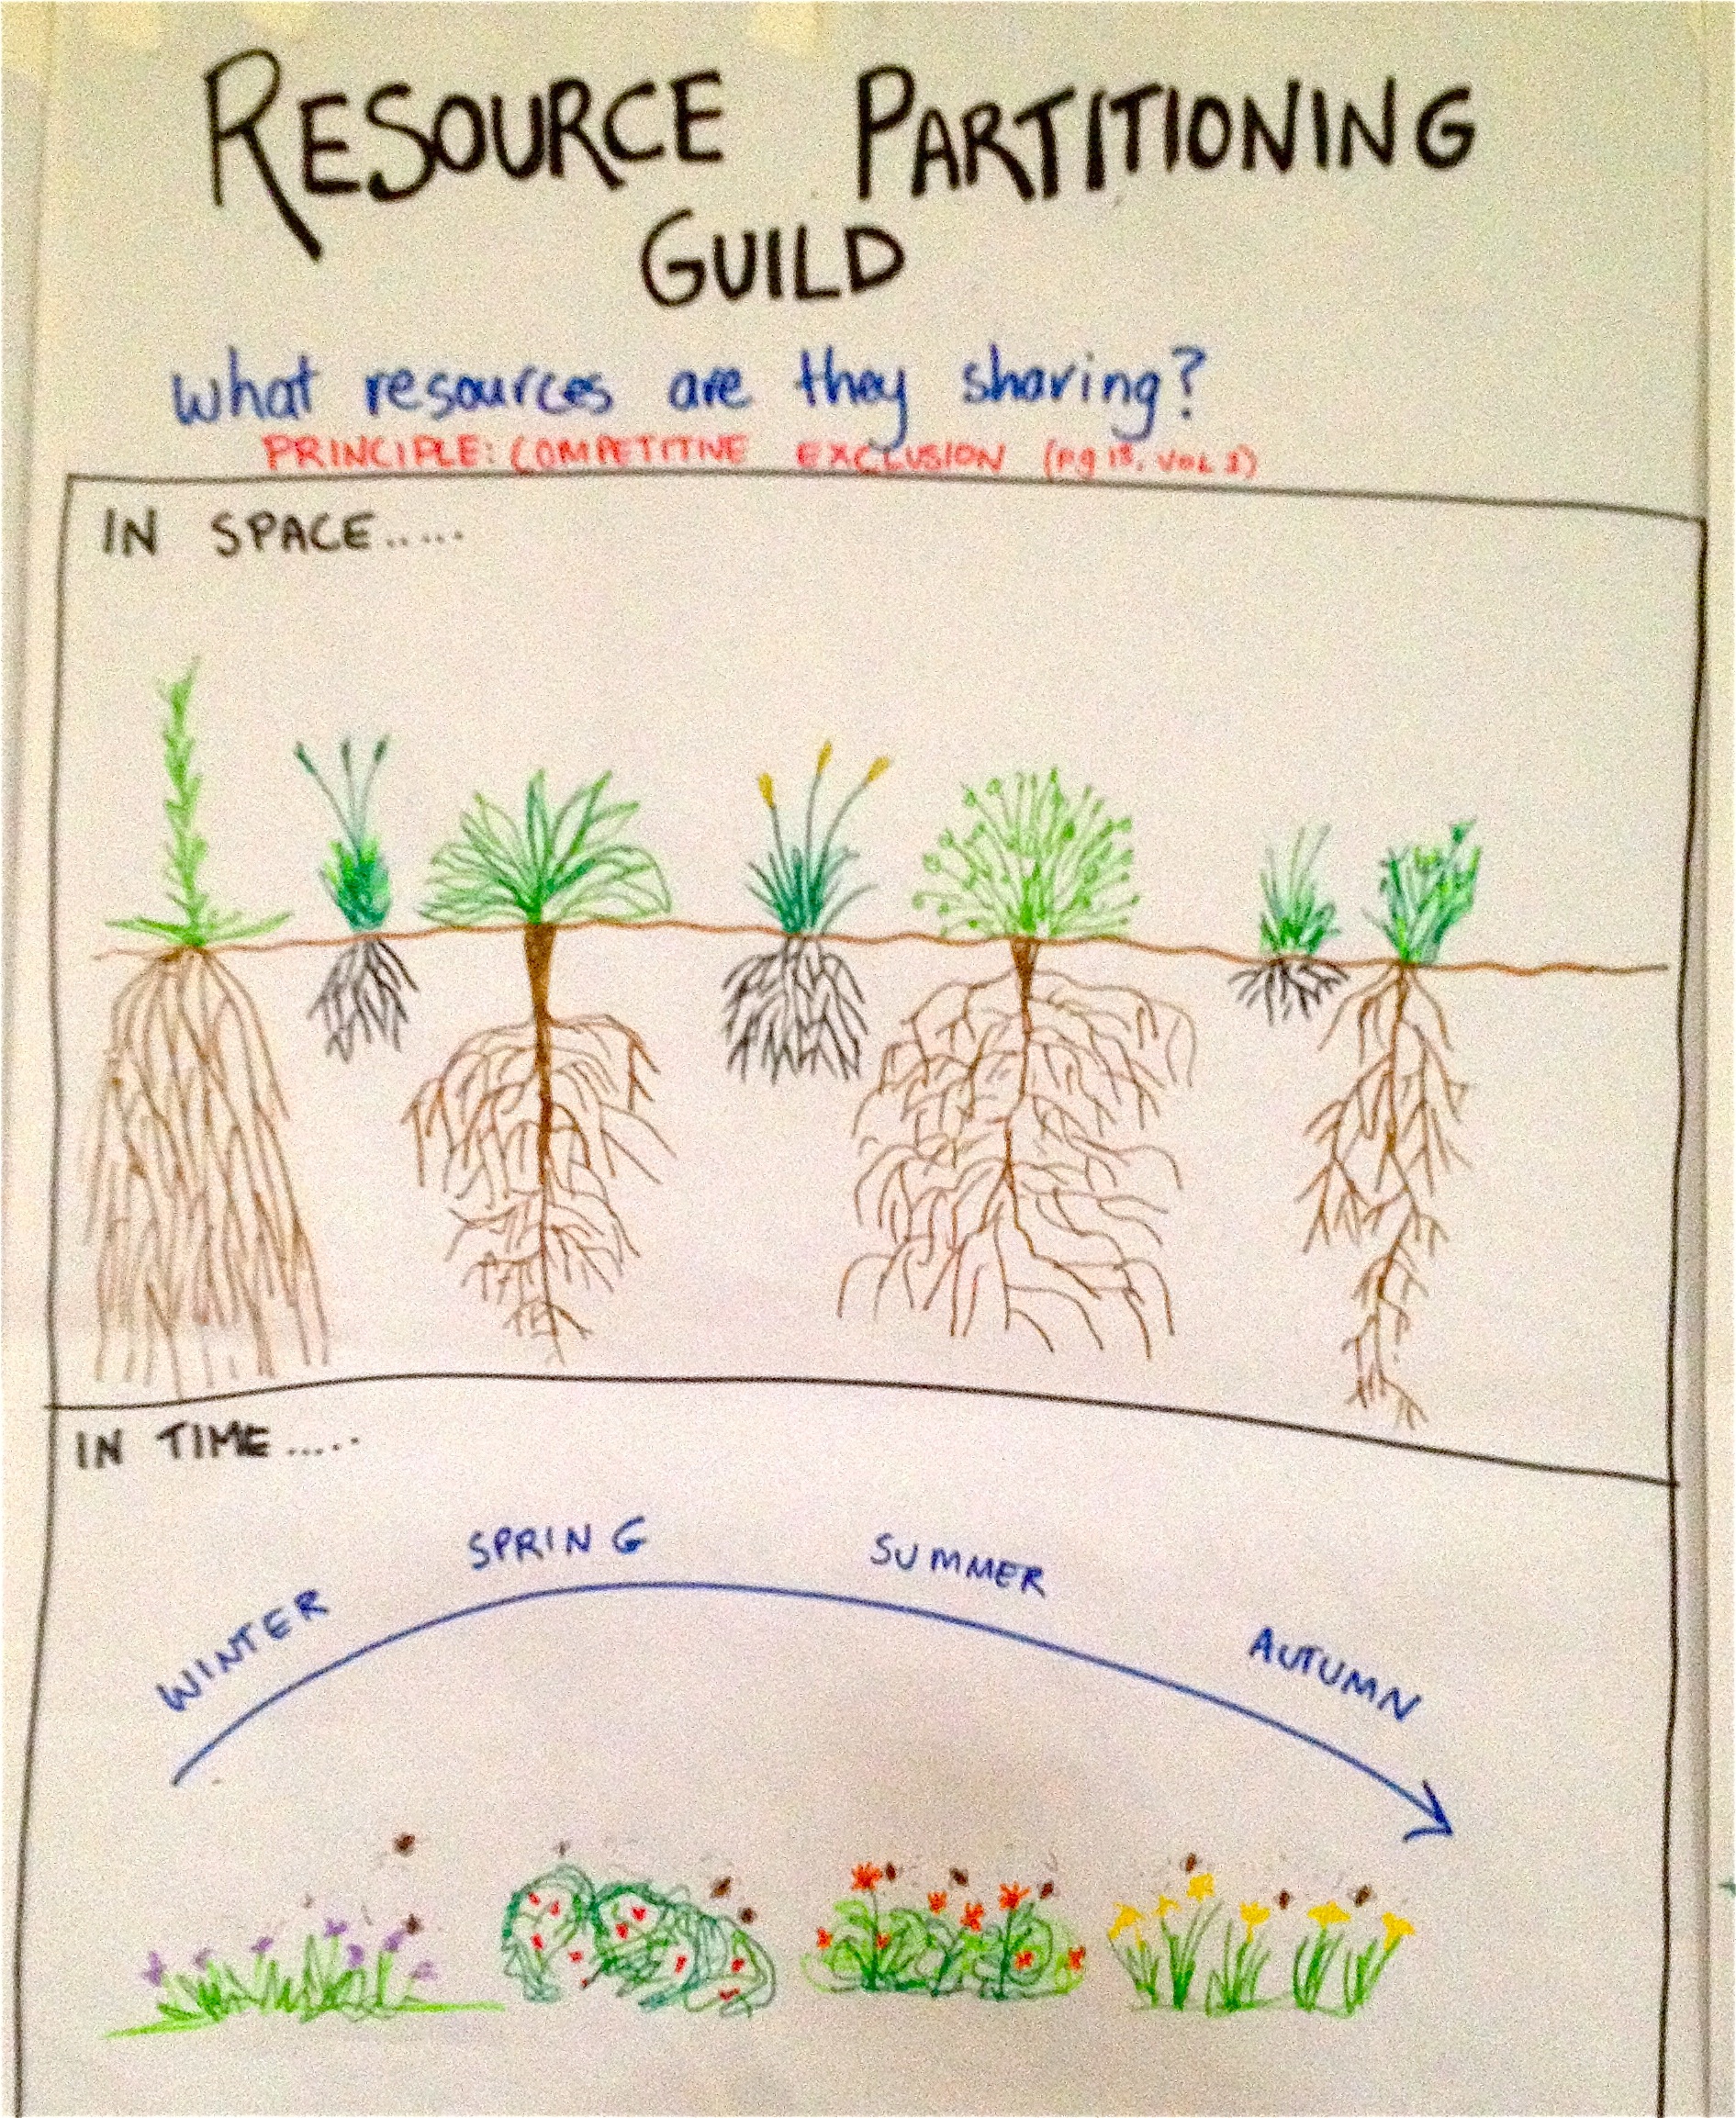 RESOURCE PARTITIONING
GUILD
what resources are they sharing?
PRINCIPLE: COMPETITIVE EXCLUSION (pg
IN SPACE.....
IN TIME.....
WINTER
SPRING
SUMMER
AUTUMN